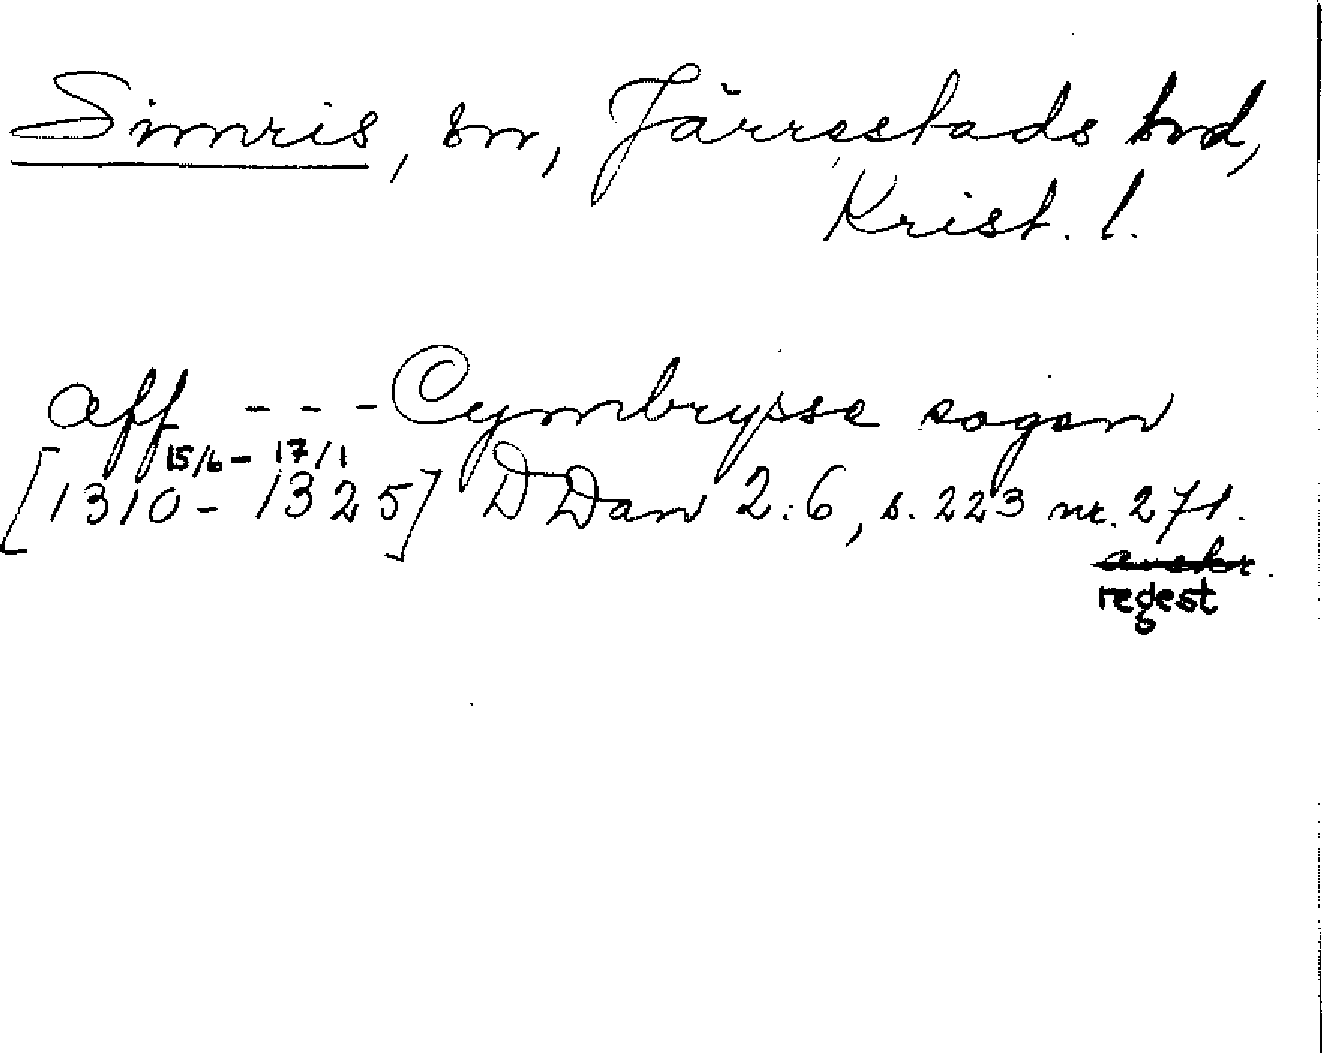 Simris, sn, Järrestads hrd,
Krist. l.
aff - - - Cymbrysse sogen
15/6 - 17/1
[1310 - 1325] DDan 2:6, s. 223 nr. 271.
avskr.
regest